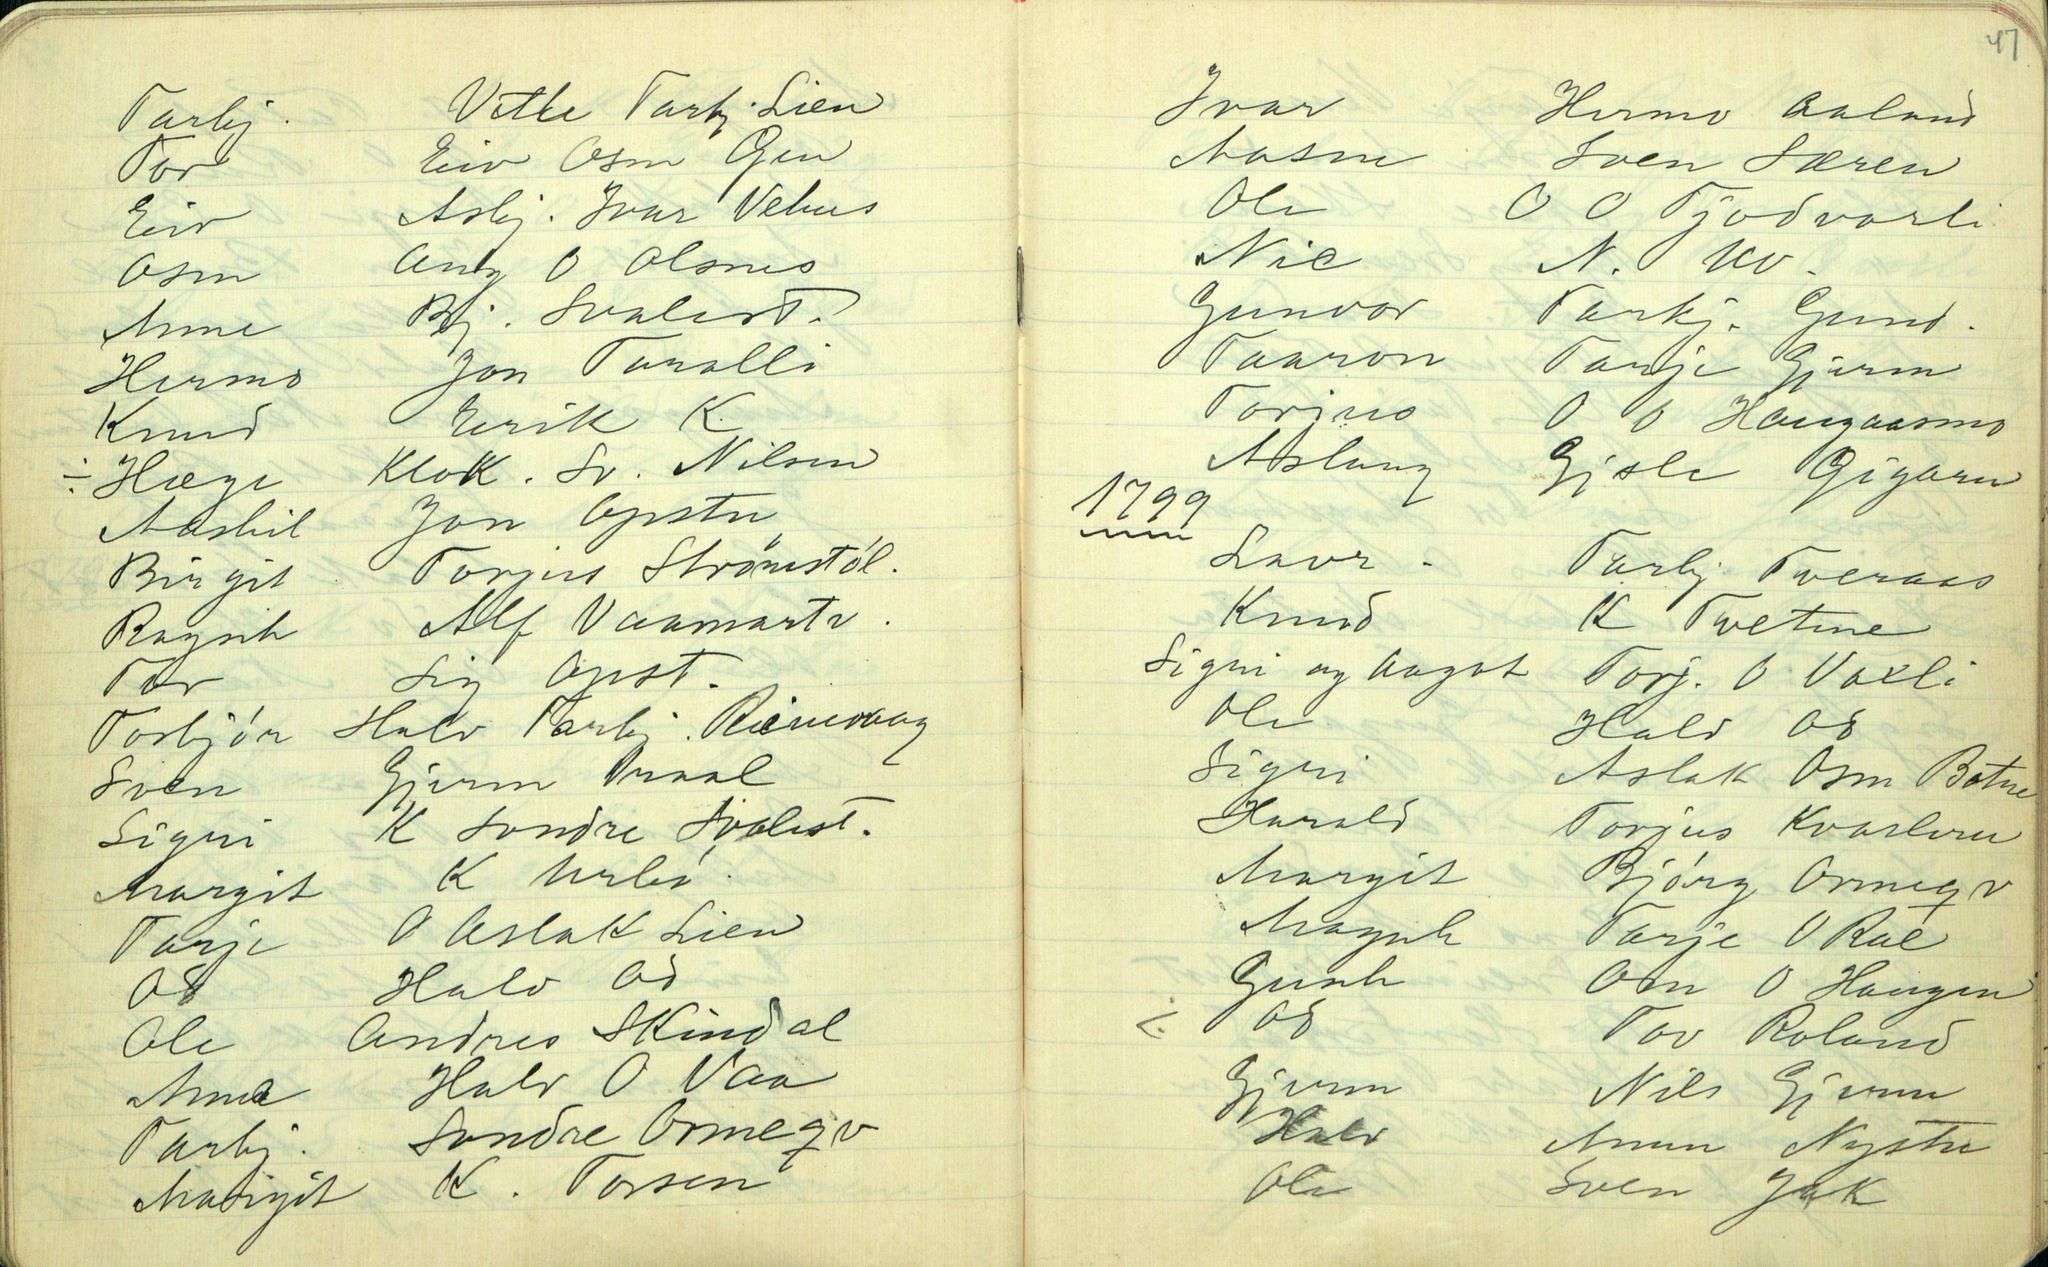 Tarbj. Vetle Tarbj. Lien
Tor Eiv Osm Gen
Eiv Asbj. Ivar Vehus
Osm Aug O Olsnes
Anne Bj. Svalest.
Hermo Jon Taralli
Knud Eirik K.
÷ Hæge Klok. Sv. Nilsen
Aashil Jon Opstu
Birgit Torjus Strömstól.
Ragnh Alf Vaamartv.
Tor Sig Opst.
Torbjór Halv Tarbj. Rinevaag
Sven Gjerm Praal
Signi K Sondre Svalest.
Margit K Urbó.
Tarje O Aslak Lien
Od Halv Od
Ole Andres Skindal
Anne Halv O Vaa
Tarbj. Sondre Ormeqv
Margit K. Torsen
47
Ivar Hermo Aaland
Aasne Sven Særen
Ole O O Tjodvarli
Nic N. Uv.
Gunvor Tarbj. Gund.
Taaron Tarje Gjerm
Torjus O O Haugaasmo
Aslaug Gjsle Gigaru
1799
Lavr. Tarbj Tveraas
Knud K Tvetine
Signi og Aagot Torj. O Vaxli
Ole Halv Od
Signi Aslak Osm Botne
Harald Torjus Kvasleru
Margit Bjórg Ormeqv
Magnh Tarje O Rae
Gunh Om O Haugen
Od Tov Roland
Gjerm Nils Gjerm
Halv Amun Nystu
Ole Sven Jak